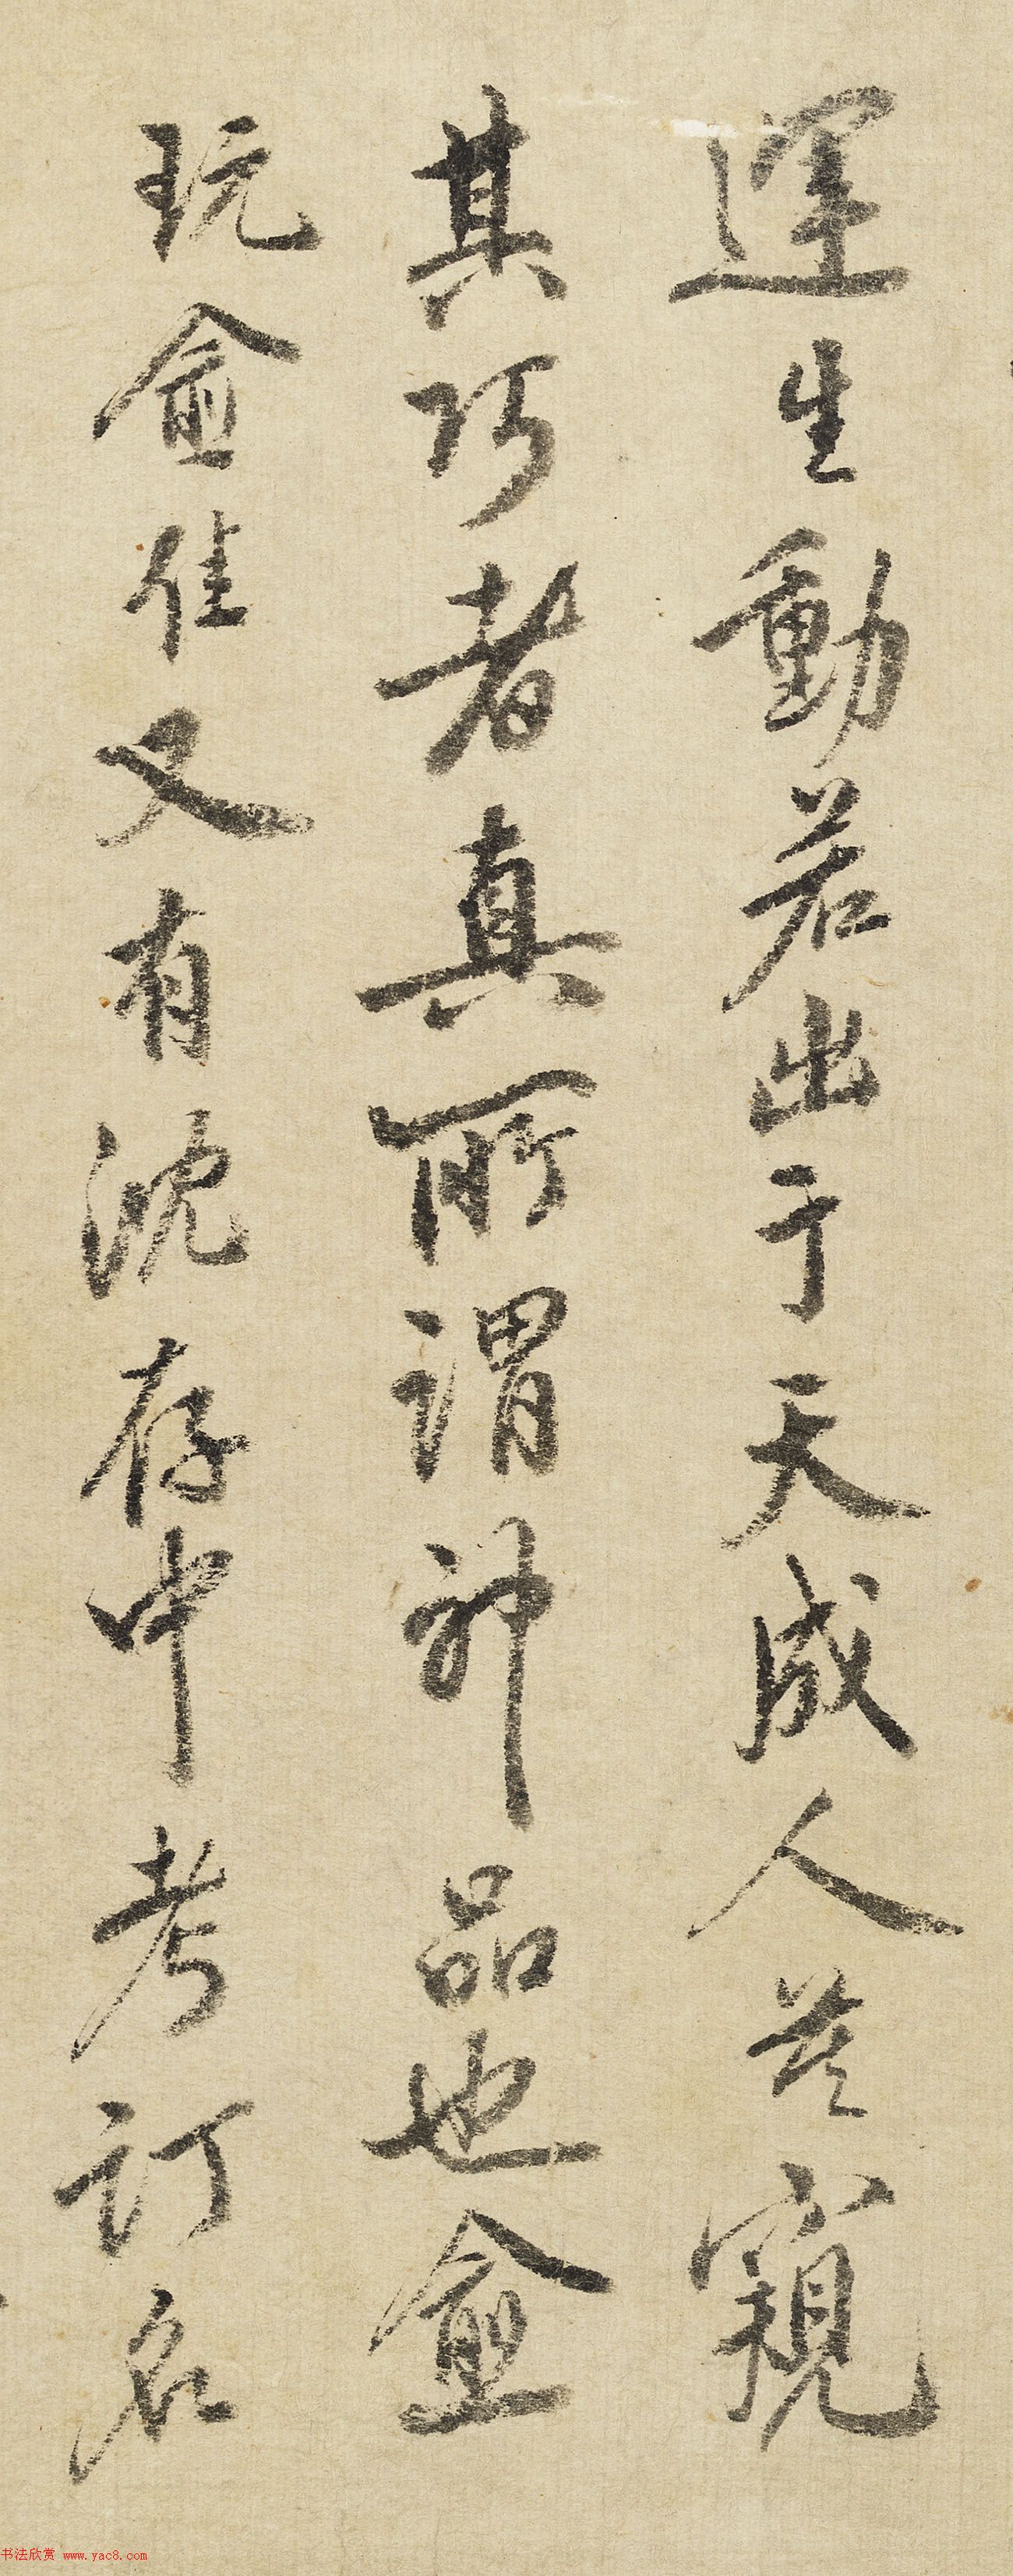 運生動若出于天成人莫窺
其巧者真所謂神品也愈
玩愈佳又有沈存中考訂名
书法欣赏 www.yac8.com